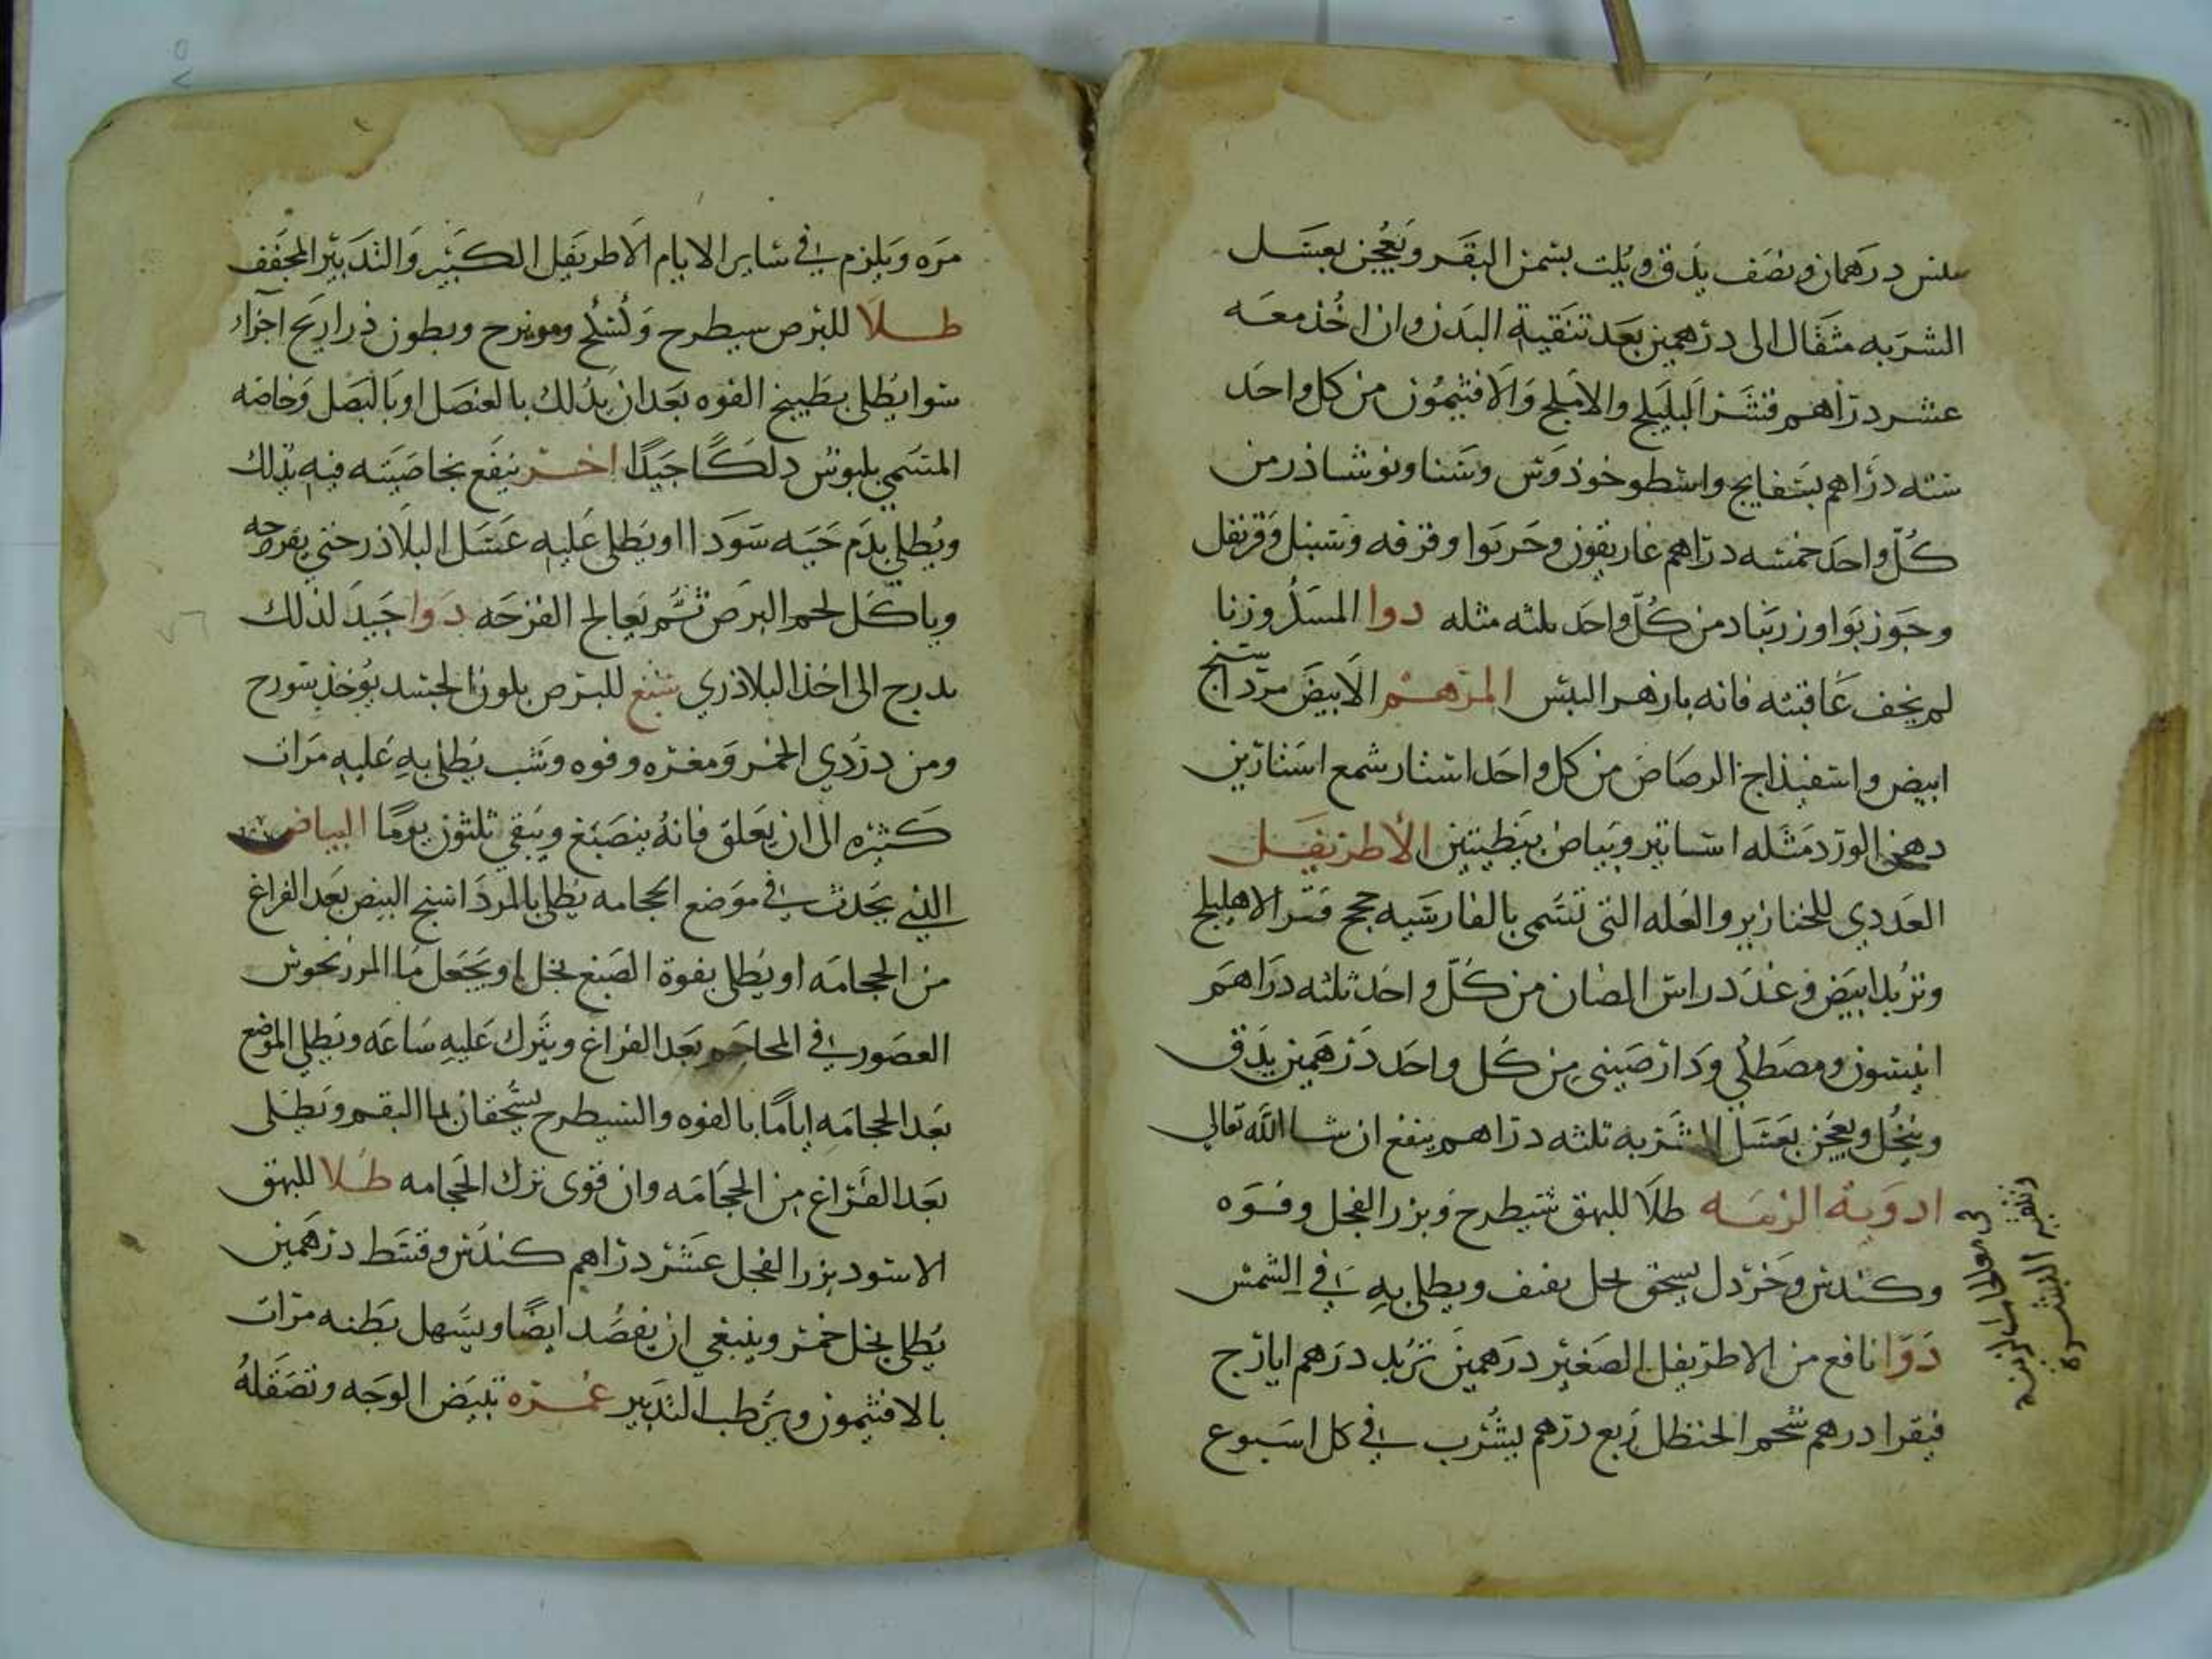 درهمان ونصف يدق ويلت بسمن البقر ويعجن بعسل
الشربه مثقال الى درهمين بعد تنقية البدن وان اخذ معه
عشر دراهم قشر البليلج والاملج والافتيمون من كل واحد
سته دراهم بسفايج واسطوخوذوس وسنا ونوشاذر من
كل واحد خمسه دراهم غاريقون وخربوا وقرفه وسنبل وقرنفل
وجوزبوا وزرنباد من كل واحد ثلثه مثله دوا المسك وزنا
لم يخف عاقبته فانه بازهر البيش المرهم الابيض مرداسنج
ابيض واسفيذاج الرصاص من كل واحد استار شمع استارين
دهن الورد مثله اساتير وبياض بيضتين الاطريفل
الغددي للخنازير والعله التي تسمى بالفارسيه قشر الاهليلج
وتربد ابيض وغدد راس الضان من كل واحد ثلثه دراهم
انيسون ومصطكي ودارصيني من كل واحد درهمين يدق
وينخل ويعجن بعسل الشربه ثلثه دراهم ينفع ان شا الله تعالى
ادوية الزينه طلا للبهق شيطرح وبزر الفجل وفوه
وكندس وخردل يسحق بخل ثقيف ويطلى به في الشمس
دوا نافع من الاطريفل الصغير درهمين تربد درهم ايارج
فيقرا درهم شحم الحنظل ربع درهم يشرب في كل اسبوع
تقشير البشرة
مره ويلزم في ساير الايام الاطريفل الكبير والتدبير المجفف
طلا للبرص سيطرح وكشلح ومويزح وبطون ذراريح اجزاء
سوا يطلى بطبيخ الفوه بعد ان يدلك بالعنصل او بالبصل وخاصه
المتسمي بلبوس دلكا جيدا اخر ينفع بخاصيته فيه يدلك
ويطلى بدم حيه سودا او يطلى عليه عسل البلاذر حتى يقرحه
وياكل لحم البرص ثم يعالج القرحه دوا جيد لذلك
يدرج الى اخذ البلاذري صبغ للبرص بلون الجسد يوخذ سورح
ومن دردي الخمر ومغره وفوه وشب يطلى به عليه مرات
كثيره الى ان يعلق فانه ينصبغ ويبقى ثلثون يوما البياض
الذي يحدث في موضع الحجامه يطلى بالمرداسنج البيض بعد الفراغ
من الحجامه او يطلى بفوة الصبغ بخل او يجعل ما المرزنجوش
العصور في المحاجم بعد الفراغ ويترك عليه ساعه ويطلى الموضع
بعد الحجامه اياما بالفوه والشيطرح يسحقان بما البقم ويطلى
بعد الفراغ من الحجامه وان قوى ترك الحجامه طلا للبهق
الاسود بزر الفجل عشر دراهم كندس وقسط درهمين
يطلى بخل خمر وينبغي ان يفصد ايضا ويسهل بطنه مرات
بالافتيمون ويرطب التدبير غمره تبيض الوجه وتصقله